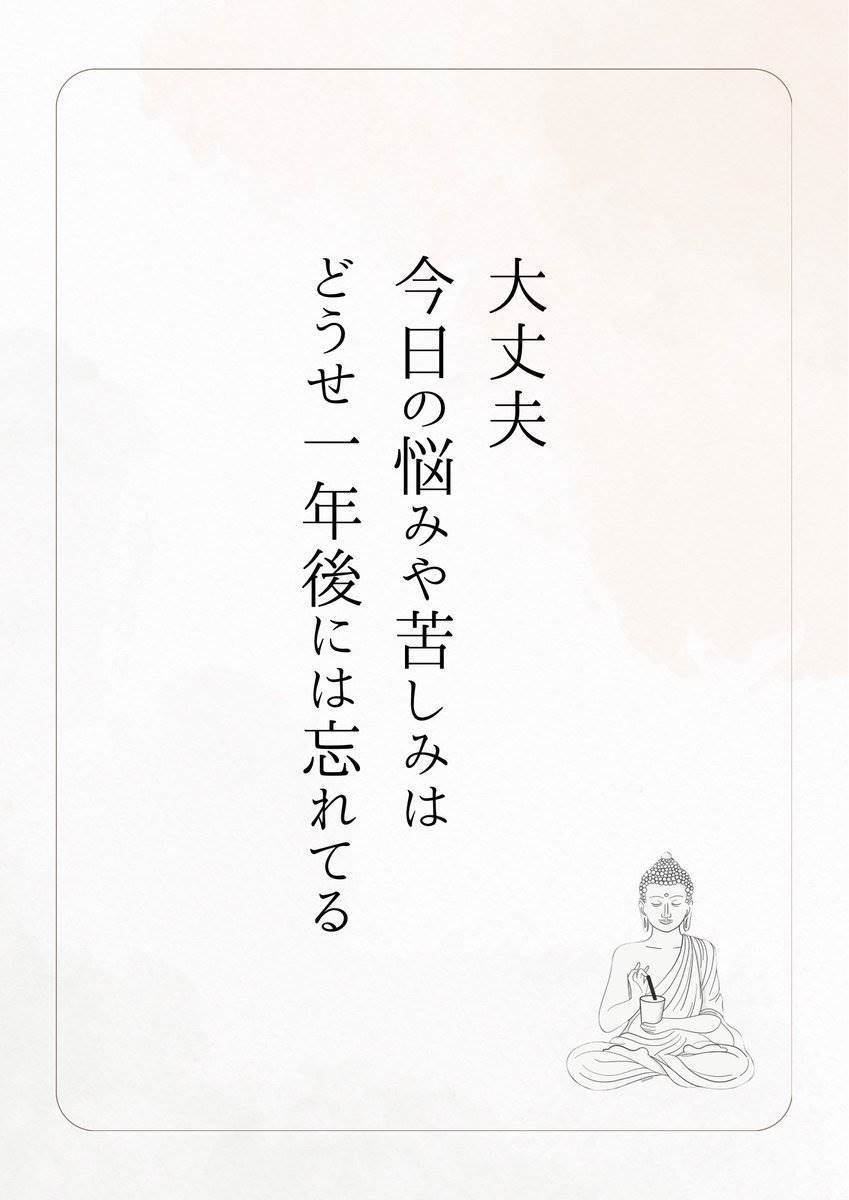 大丈夫
今日の悩みや苦しみは
どうせ一年後には忘れてる